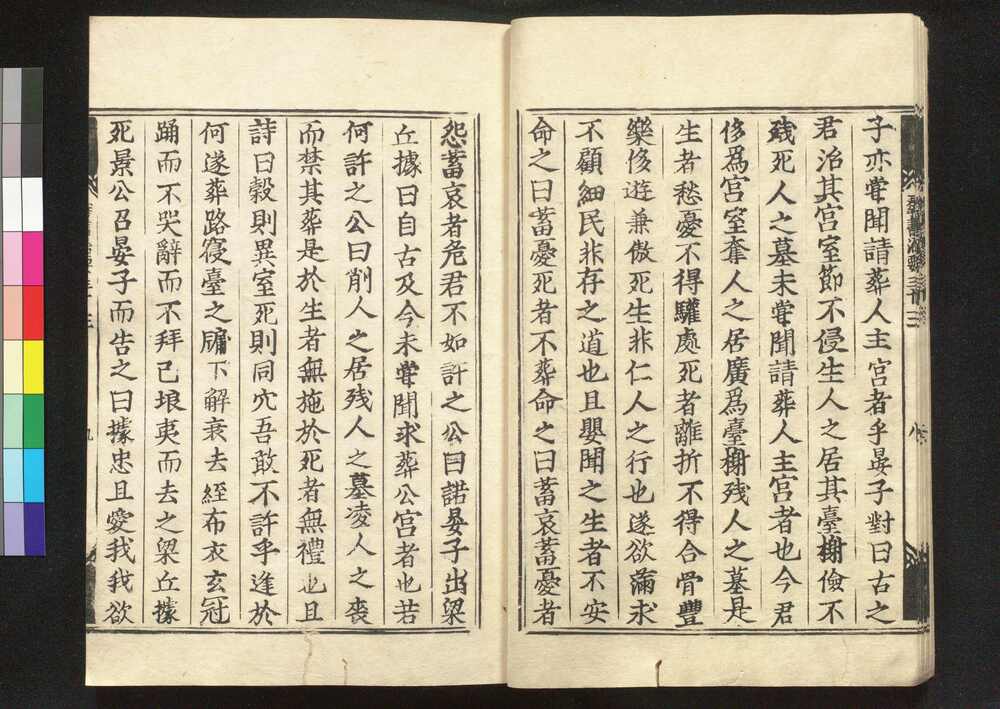 子亦甞聞請葬人主宮者乎晏子對曰古之
君治其宮室節不侵生人之居其臺榭儉不
殘死人之墓未甞聞請葬人主宮者也今君
侈爲宮室奪人之居廣爲臺榭残人之墓是
生者愁憂不得驩處死者離折不得合骨豐
樂侈遊兼傲死生非仁人之行也遂欲滿求
不顧細民非存之道也且嬰聞之生者不安
命之曰蓄憂死者不葬命之曰蓄哀蓄憂者
怨蓄哀者危君不如許之公曰諾晏子出梁
丘據曰自古及今未甞聞求葬公宮者也若
何許之公曰削人之居残人之墓凌人之喪
而禁其葬是於生者無施於死者無禮也且
詩曰穀則異室死則同穴吾敢不許乎逢於
何遂葬路寑臺之牖下解衰去絰布衣玄冠
踊而不哭辭而不拜已埌夷而去之梁丘據
死景公召晏子而告之曰據忠且愛我我欲